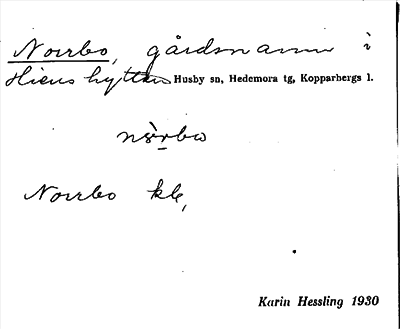 Norrbo, gårdsnamn i
Stiernshyttan Husby sn, Hedemora tg, Kopparbergs l.
nòrbω
Norrbo kb,
Karin Hessling 1930